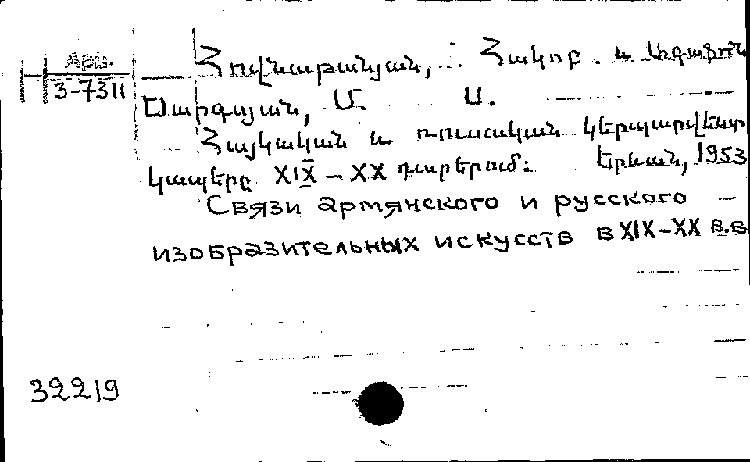 Арм.
3-7311
Հովնաթանյան, Հակոբ. և
Սարգսյան, Մ. Ս.
Հայկական և ռուսական կերպարվեստ
կապերը XIX – XX դարերում: Երևան, 1953
Связи армянского и русского
изобразительных искусств в XIX–XX в.в
32219